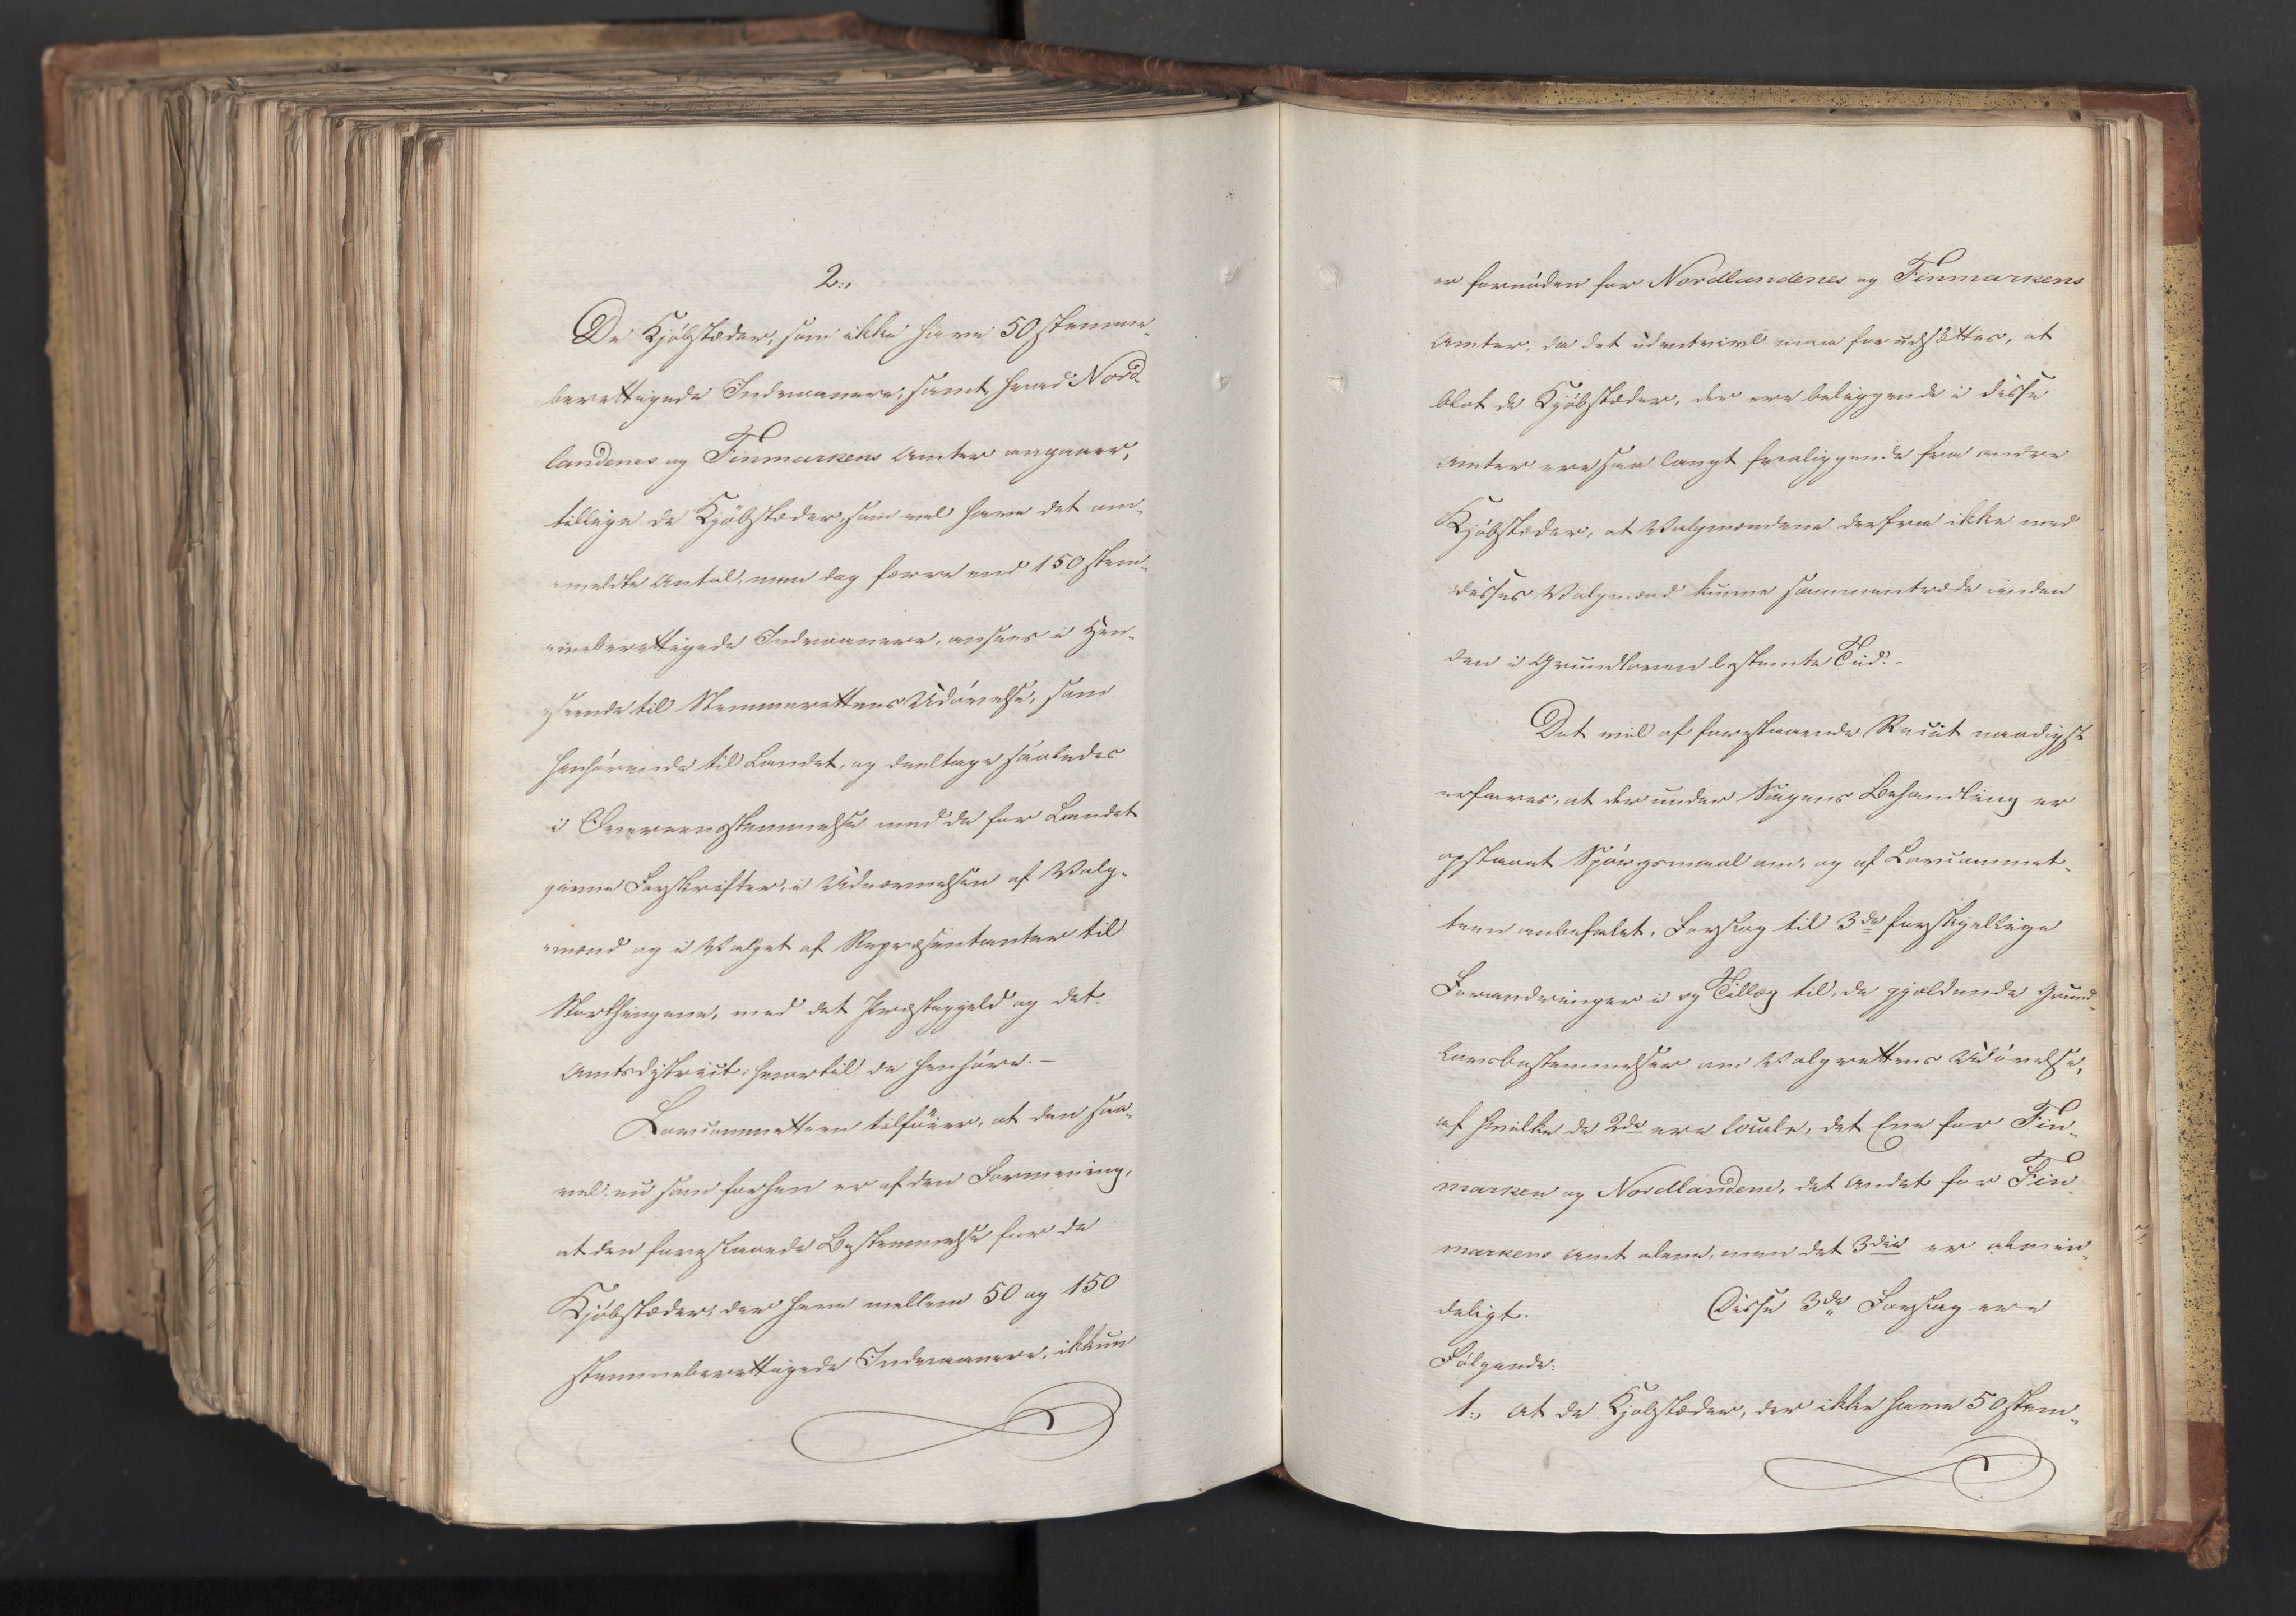 2.,
De Kjöbstæder, som ikke have 50 stemme-
berettigede Indvaanere, samt hvad Nord-
landenes og Finmarkens Amter angaaer,
tillige de Kjöbstæder, som vel have det an-
"meldte Antal, men dog færre end 150 stem-
"meberettigede Indvaanere, ansees i Hen-
seende til Stemmerettens Udövelse, som
henhörende til Landet, og deeltage saaledes
i Overeensstemmelse med de for Landet
givne Forskrifter, i Udnævnelsen af Valg-
"mænd og i Valget af Repræsentanter til
Storthingene, med det Præstegjeld og det
Amtsdistrict, hvortil de henhöre. —
Lovcommitteen tilföier, at den saa-
vel nu som forhen er af den Formening,
at den foreslaaede Bestemmelse for de
Kjöbstæder, der have mellem 50 og 150
stemmeberettigede Indvaanere, ikkun
er fornöden for Nordlandenes og Finmarkens
Amter, da det udentvivl maa forudsættes, at
blot de Kjöbstæder, der ere beliggende i disse
Amter ere saa langt fraliggende fra andre
Kjöbstæder, at Valgmændene derfra ikke med
disses Valgmænd kunne sammentræde inden
den i Grundloven bestemte Tid. -
Det vil af forestaaende Recit naadigst
erfares, at der under Sagens Behandling er
opstaaet Spörgsmaal om, og af Lovcommit-
teen anbefalet, Forslag til 3de forskjellige
Forandringer i og Tillæg til, de gjældende Grund-
lovsbestemmelser om Valgrettens Udövelse,
af hvilke de 2de ere locale, det Ene for Fin-
marken og Nordlandene, det Andet for Fin-
markens Amt alene, men det 3die er almin-
deligt. Disse 3de Forslag ere
Fölgende:
1., At de Kjöbstæder, der ikke have 50 stem-